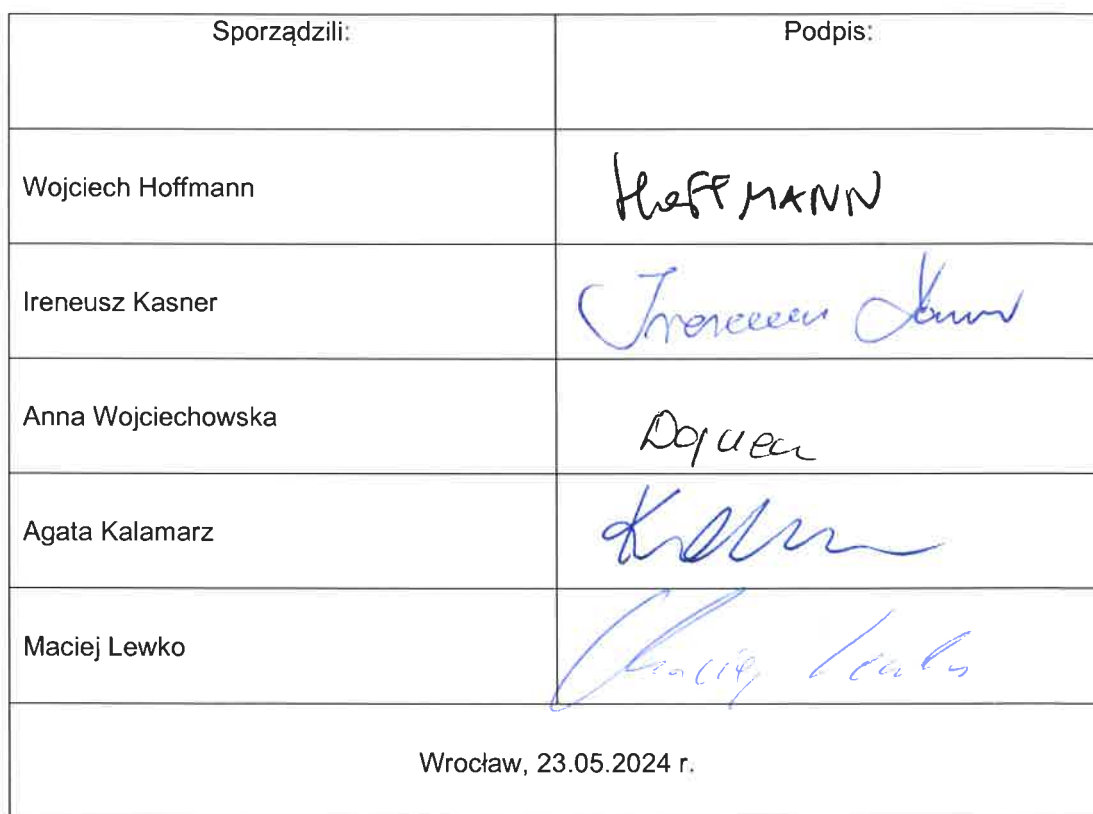 Sporządzili: Podpis:
Wojciech Hoffmann HoffMANN
Ireneusz Kasner Ireneusz
Anna Wojciechowska
Agata Kalamarz
Maciej Lewko Maciej Lewko
Wrocław, 23.05.2024 r.